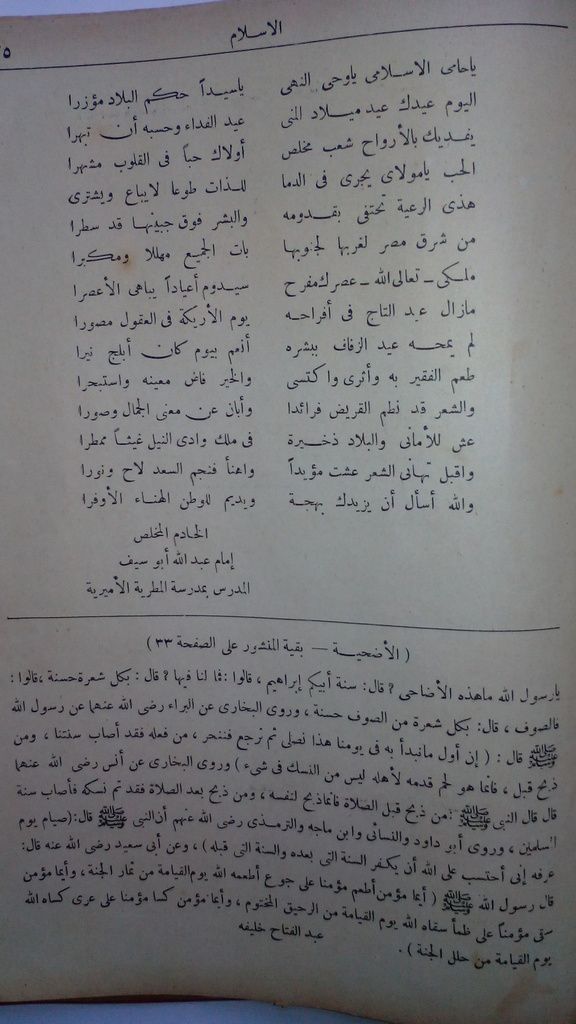 الاسلام
٥
ياحامى الاسلامى ياوحى النهى ياسيداً حكم البلاد مؤزرا
اليوم عيدك عيد ميلاد المنى عيد الفداء وحسبه أن تبهرا
يفديك بالأرواح شعب مخلص أولاك حباً فى القلوب مشهرا
الحب يامولاى يجرى فى الدما للذات طوعا لايباع ويشترى
هذى الرعية تحتفى بقدومه والبشر فوق جبينها قد سطرا
من شرق مصر لغربها لجنوبها بات الجميع مهللا ومكبرا
ملكى – تعالى الله – عصرك مفرح سيدوم أعياداً يباهى الأعصرا
مازال عبد التاج فى أفراحه يوم الأريكة فى العقول مصورا
لم يمحه عيد الزفاف ببشره أنعم بيوم كان أبلج نيرا
طعم الفقير به وأثرى واكتسى والخير فاض معينه واستبحرا
والشعر قد نظم القريض فرائدا وأبان عن معنى الجمال وصورا
عش للأمانى والبلاد ذخيرة فى ملك وادى النيل غيثاً ممطرا
واقبل تهانى الشعر عشت مؤيداً واهنأ فنجم السعد لاح ونورا
والله أسأل أن يزيدك بهجة ويديم للوطن الهناء الأوفرا
الخادم المخلص
إمام عبد الله أبو سيف
المدرس بمدرسة المطرية الأميرية
( الأضحية — بقية المنشور على الصفحة ٣٣ )
يارسول الله ماهذه الأضاحى ؟ قال : سنة أبيكم إبراهيم ، قالوا : فما لنا فيها ؟ قال : بكل شعرة حسنة ، قالوا :
فالصوف ، قال : بكل شعرة من الصوف حسنة ، وروى البخارى عن البراء رضى الله عنهما عن رسول الله
ﷺ قال : ( إن أول مانبدأ به فى يومنا هذا نصلى ثم نرجع فننحر ، من فعله فقد أصاب سنتنا ، ومن
ذبح قبل ، فانما هو لحم قدمه لأهله ليس من النسك فى شىء ) وروى البخارى عن أنس رضى الله عنهما
قال قال النبى ﷺ : من ذبح قبل الصلاة فانماذبح لنفسه ، ومن ذبح بعد الصلاة فقد تم نسكه فأصاب سنة
المسلمين ، وروى أبو داود والنسائى وابن ماجه والترمذى رضى الله عنهم أن النبى ﷺ قال : ( صيام يوم
عرفه إنى أحتسب على الله أن يكفر السنة التى بعده والسنة التى قبله ) ، وعن أبى سعيد رضى الله عنه قال :
قال رسول الله ﷺ ( أيما مؤمن أطعم مؤمنا على جوع أطعمه الله يوم القيامة من ثمار الجنة ، وأيما مؤمن
سقى مؤمناً على ظمأ سقاه الله يوم القيامة من الرحيق المختوم ، وأيما مؤمن كسا مؤمنا على عرى كساه الله
يوم القيامة من حلل الجنة ) . عبد الفتاح خليفه